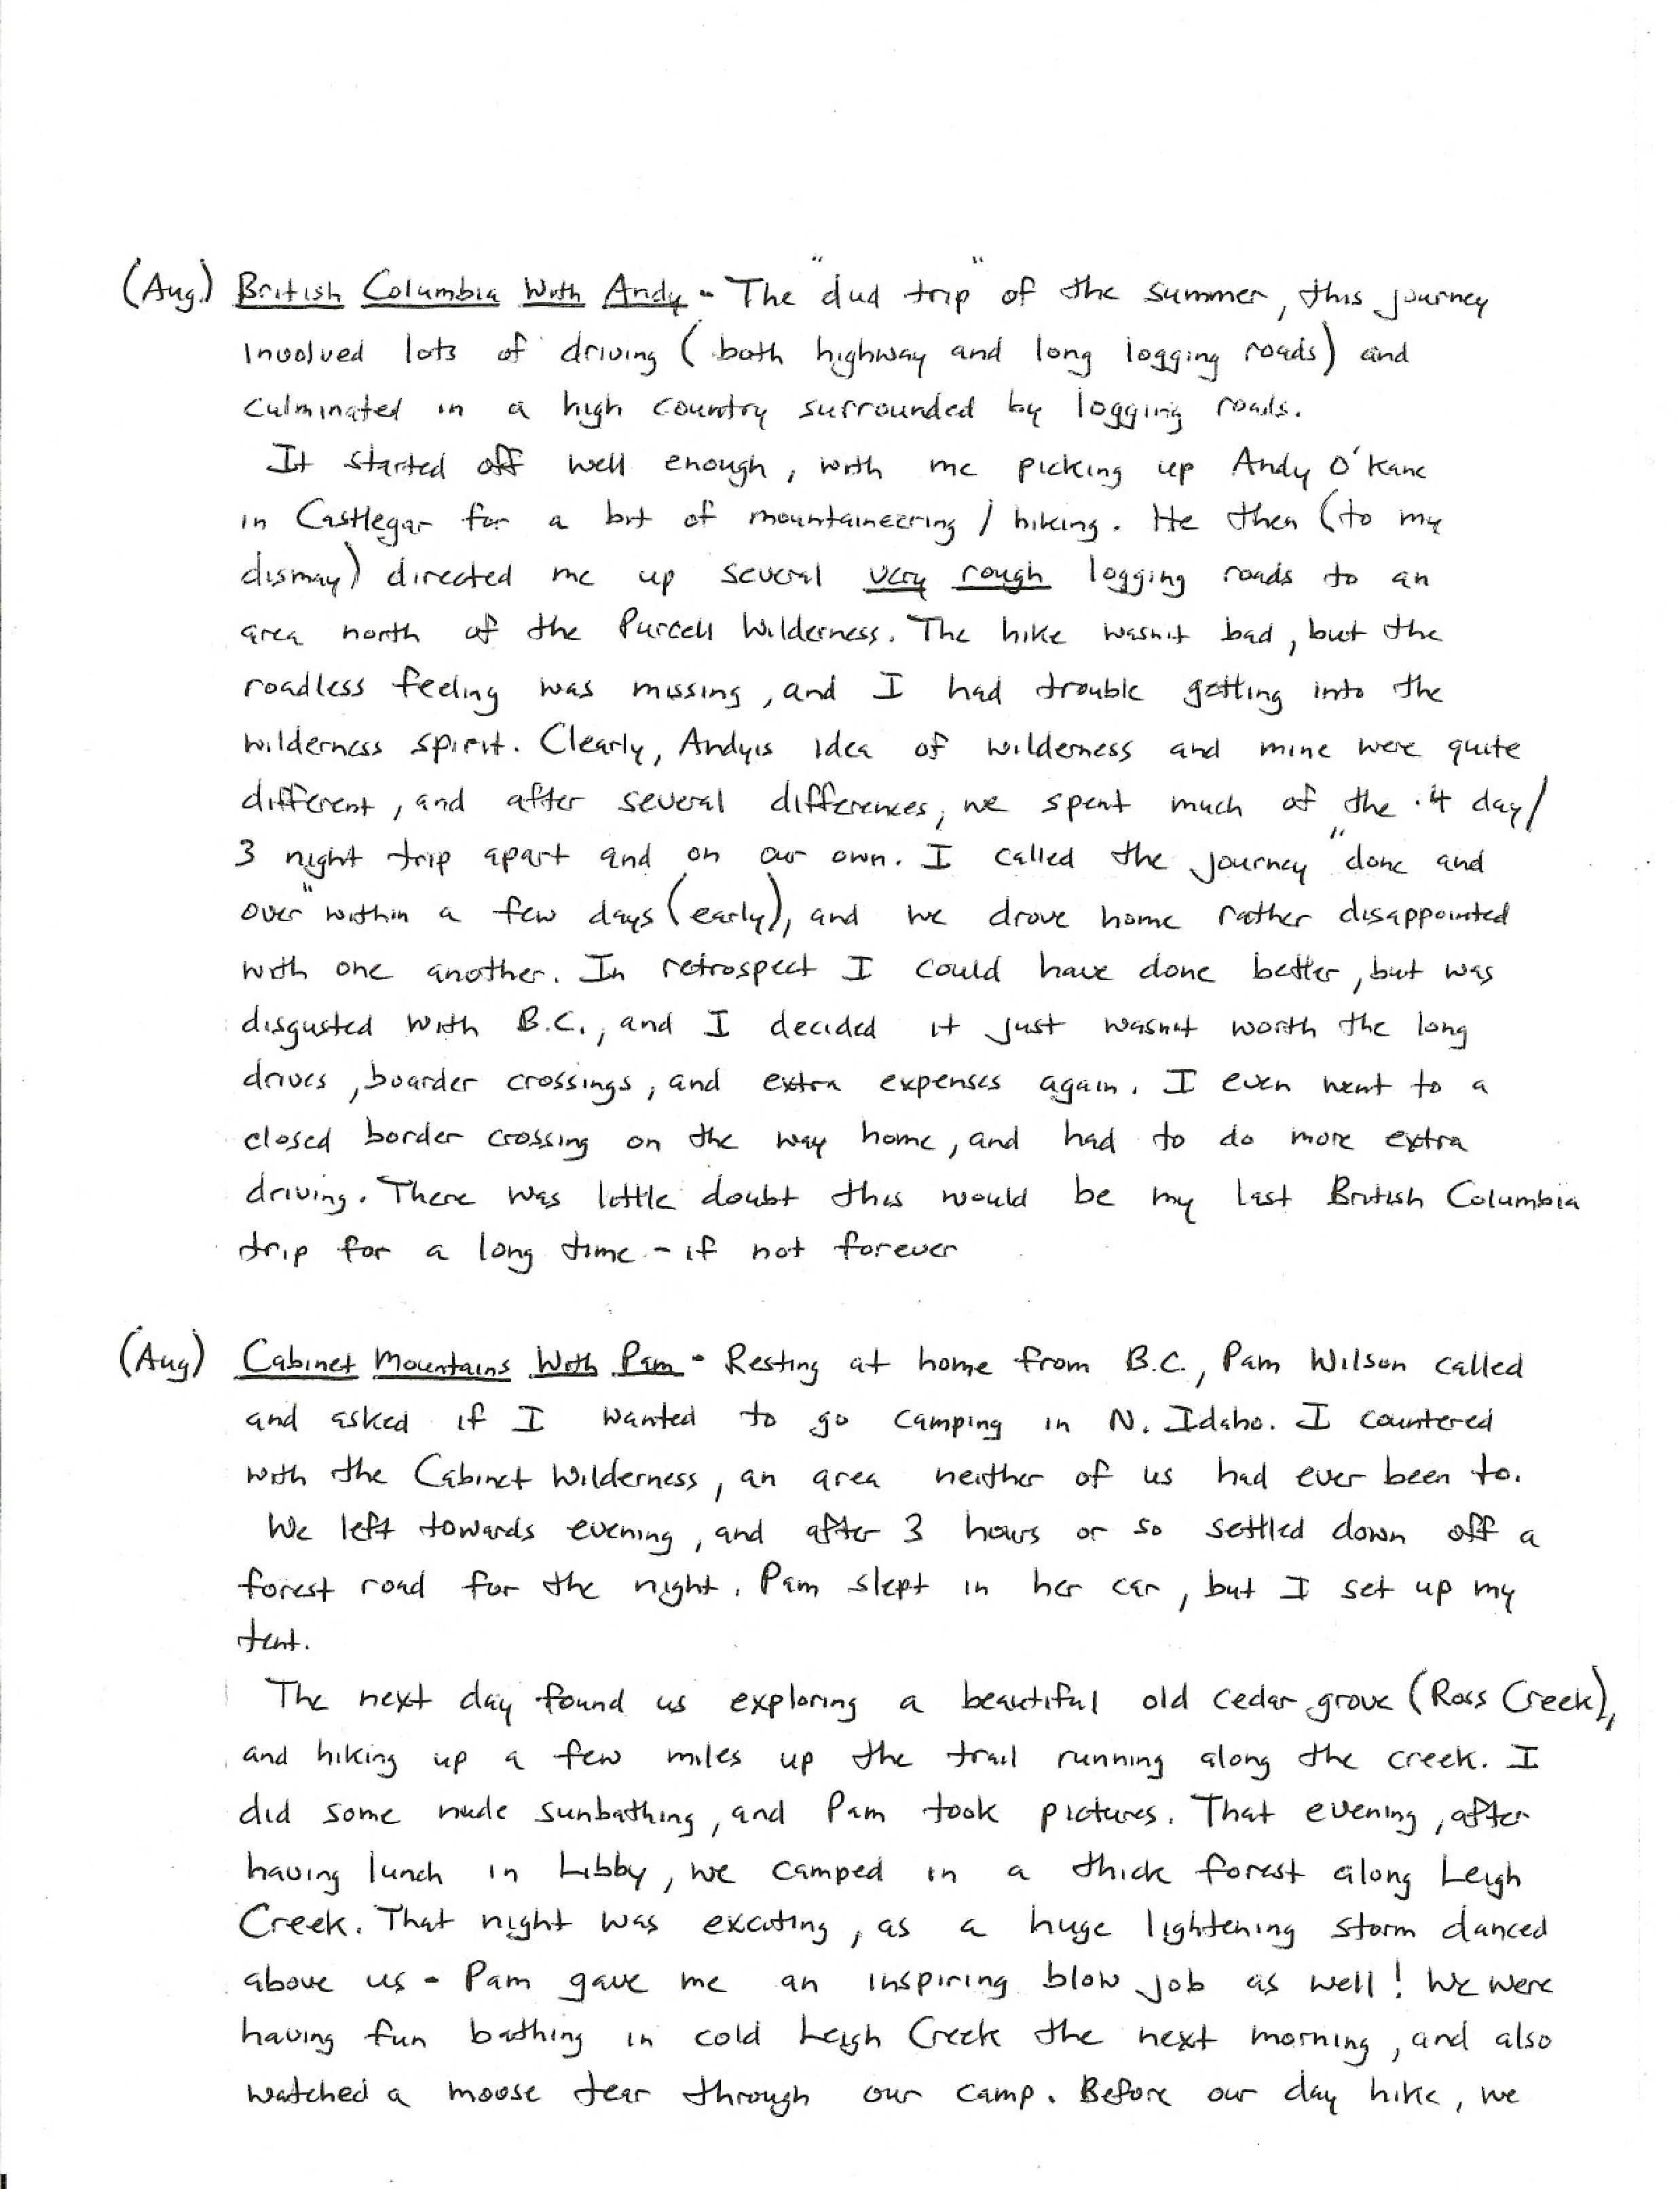 (Aug.) British Columbia With Andy - The "dud trip" of the summer, this journey
involved lots of driving (both highway and long logging roads) and
culminated in a high country surrounded by logging roads.
It started off well enough, with me picking up Andy O'Kane
in Castlegar for a bit of mountaineering / hiking. He then (to my
dismay) directed me up several very rough logging roads to an
area north of the Purcell Wilderness. The hike wasn't bad, but the
roadless feeling was missing, and I had trouble getting into the
wilderness spirit. Clearly, Andy's idea of wilderness and mine were quite
different, and after several differences, we spent much of the 4 day/
3 night trip apart and on our own. I called the journey "done and
over" within a few days (early), and we drove home rather disappointed
with one another. In retrospect I could have done better, but was
disgusted with B.C., and I decided it just wasn't worth the long
drives, boarder crossings, and extra expenses again. I even went to a
closed border crossing on the way home, and had to do more extra
driving. There was little doubt this would be my last British Columbia
trip for a long time - if not forever
(Aug) Cabinet Mountains With Pam - Resting at home from B.C., Pam Wilson called
and asked if I wanted to go camping in N. Idaho. I countered
with the Cabinet Wilderness, an area neither of us had ever been to.
We left towards evening, and after 3 hours or so settled down off a
forest road for the night. Pam slept in her car, but I set up my
tent.
The next day found us exploring a beautiful old cedar grove (Ross Creek),
and hiking up a few miles up the trail running along the creek. I
did some nude sunbathing, and Pam took pictures. That evening, after
having lunch in Libby, we camped in a thick forest along Leigh
Creek. That night was exciting, as a huge lightening storm danced
above us - Pam gave me an inspiring blow job as well! We were
having fun bathing in cold Leigh Creek the next morning, and also
watched a moose tear through our camp. Before our day hike, we